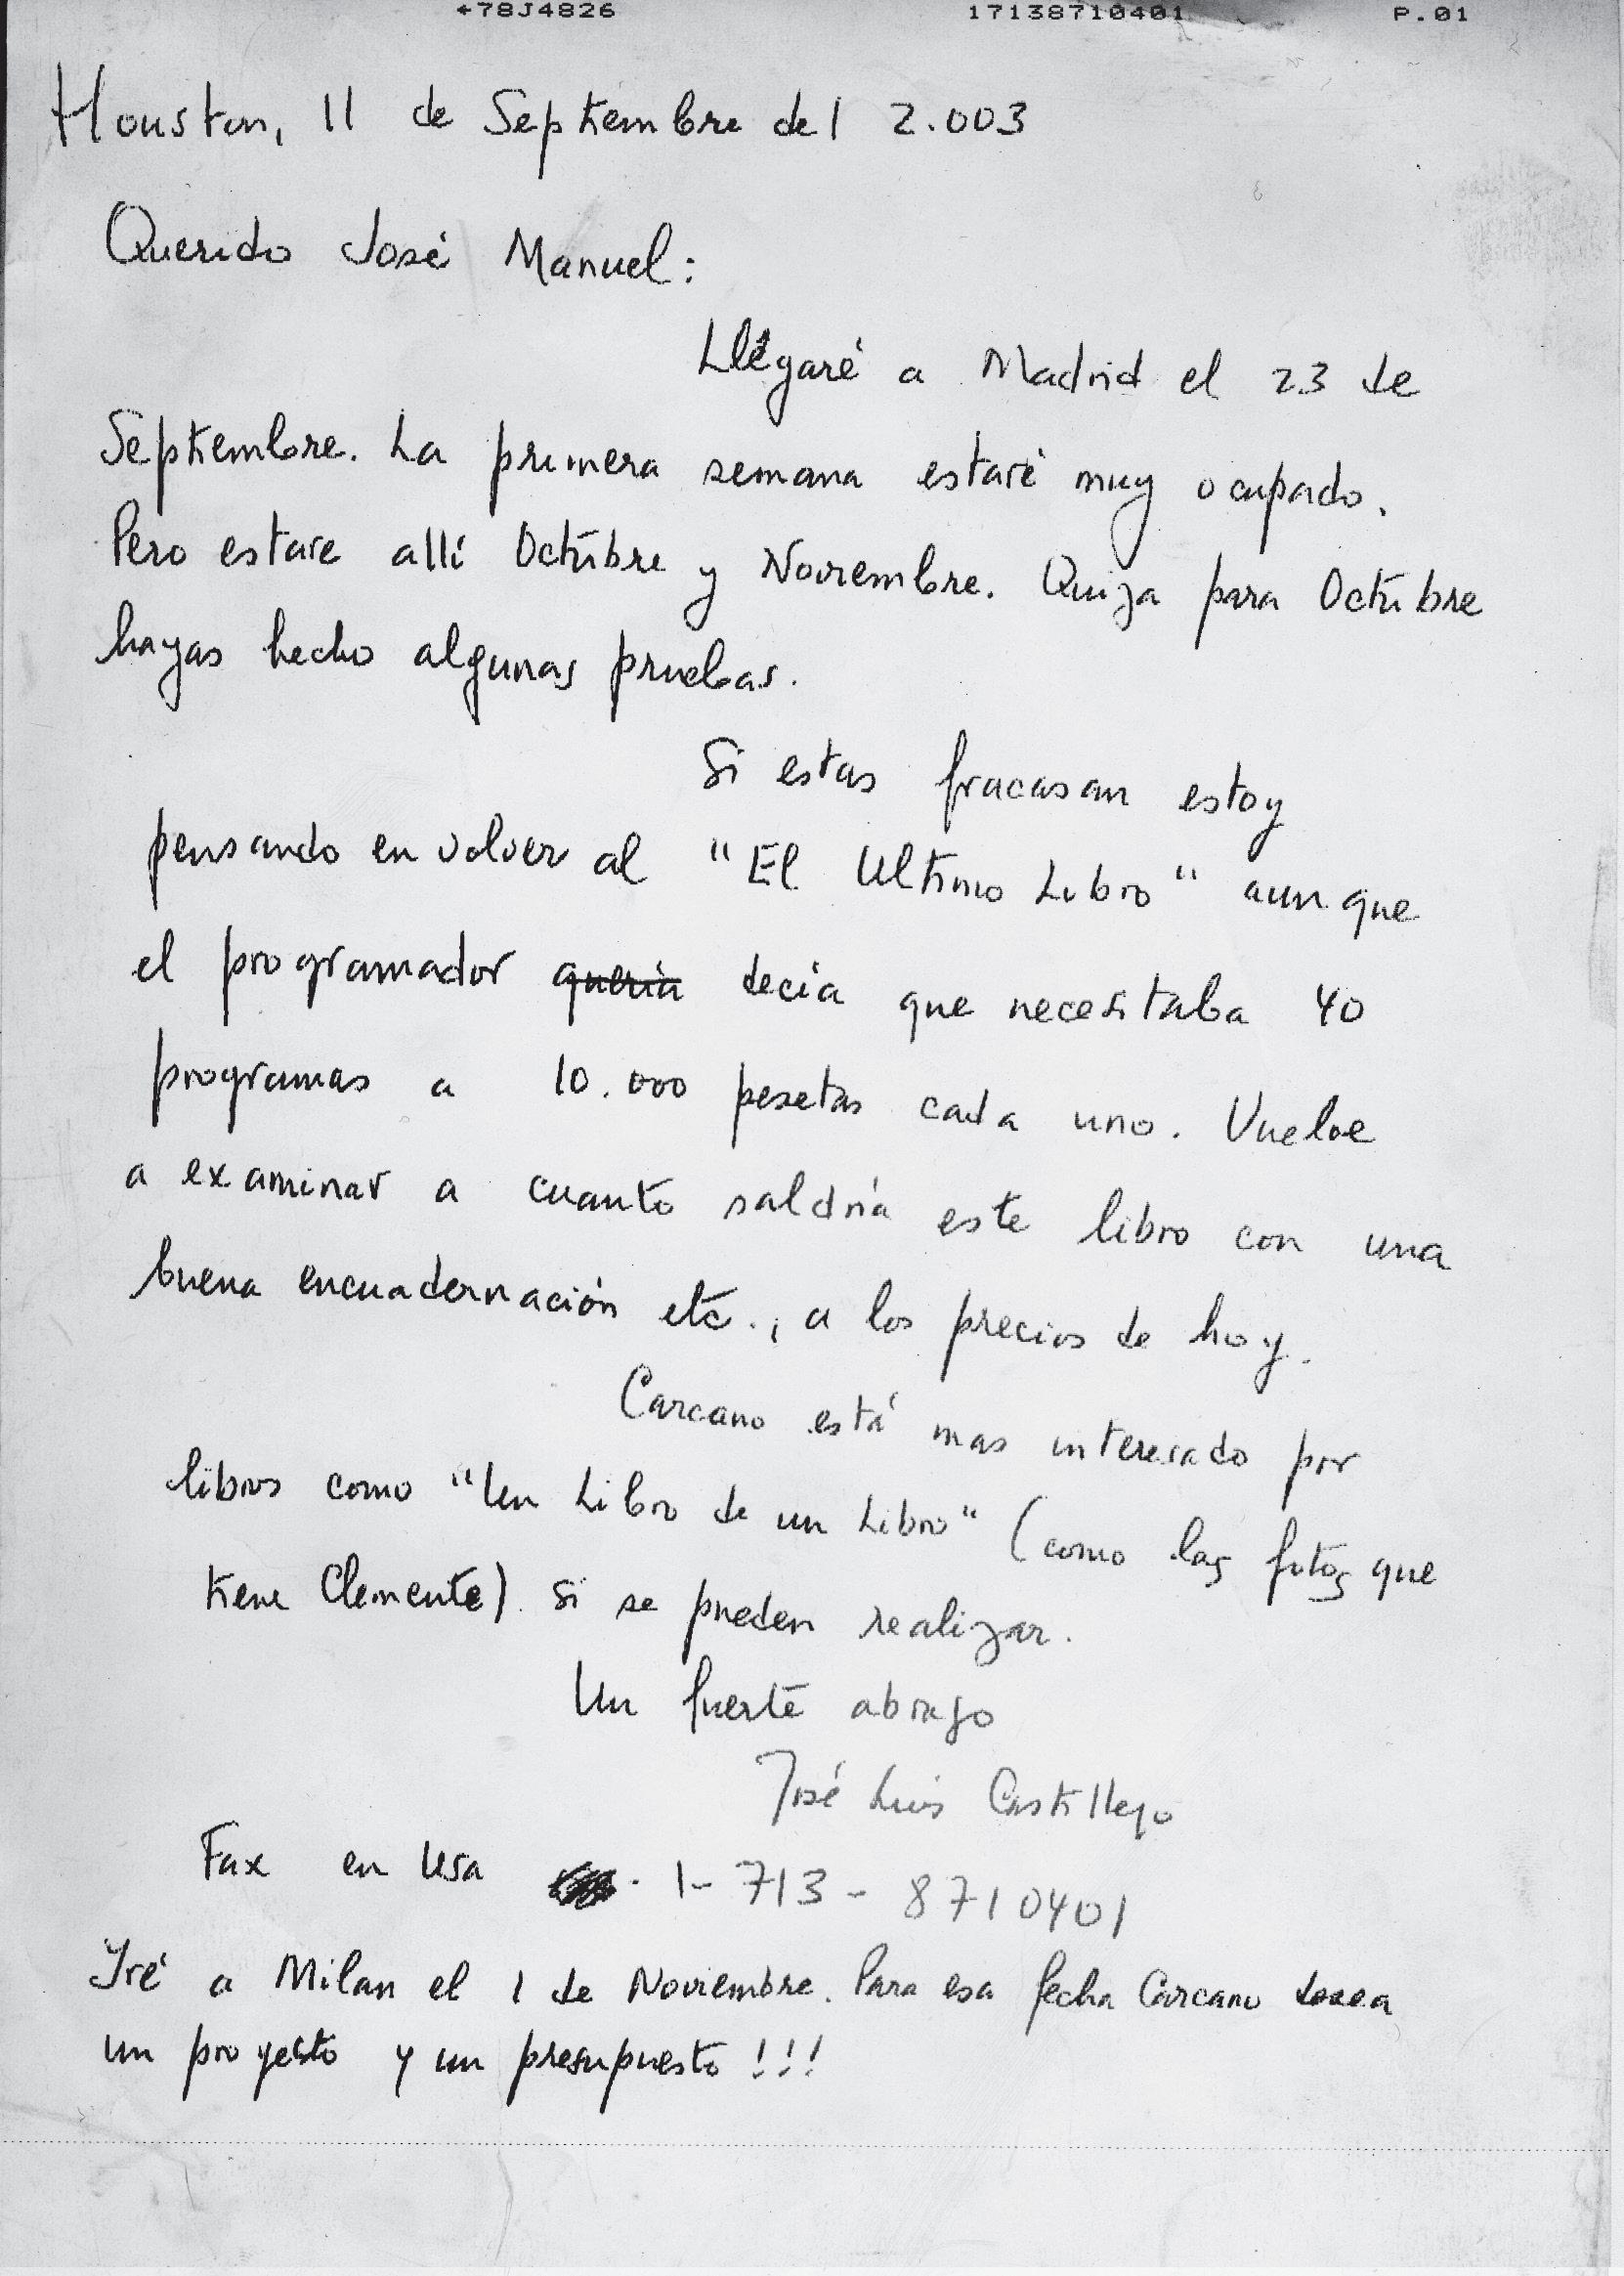 +78J4826 17138710401 P.01
Houston, 11 de Septiembre del 2.003
Querido José Manuel:
Llegaré a Madrid el 23 de
Septiembre. La primera semana estaré muy ocupado.
Pero estare allí Octubre y Noviembre. Quiza para Octubre
hayas hecho algunas pruebas.
Si estas fracasan estoy
pensando en volver al "El Ultimo Libro" aunque
el programador queria decía que necesitaba 40
programas a 10.000 pesetas cada uno. Vuelve
a examinar a cuanto saldría este libro con una
buena encuadernación etc., a los precios de hoy.
Carcano está mas interesado por
libros como "Un Libro de un Libro" (como las fotos que
tiene Clemente) si se pueden realizar.
Un fuerte abrazo
José Luis Castillejo
Fax en Usa 1-713-8710401
Iré a Milan el 1 de Noviembre. Para esa fecha Carcano desea
un proyecto y un presupuesto!!!